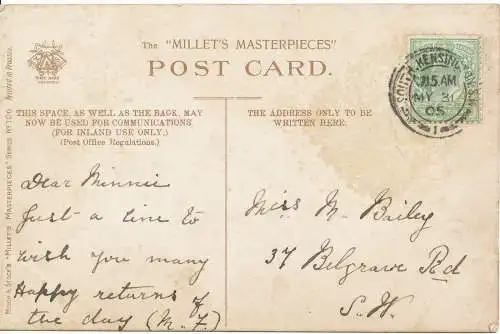 The "MILLET'S MASTERPIECES"
POST CARD.
THIS SPACE, AS WELL AS THE BACK, MAY
NOW BE USED FOR COMMUNICATIONS
(FOR INLAND USE ONLY.)
(Post Office Regulations.)
THE ADDRESS ONLY TO BE
WRITTEN HERE.
SOUTH KENSINGTON S.W.
7.15 AM
MY 31
05
1
Dear Minnie
Just a line to
wish you many
Happy returns of
the day (M. F)
Miss M. Bailey
37 Belgrave Rd
S. W.
"MILLET'S MASTERPIECES" SERIES No 100
Printed in Prussia.